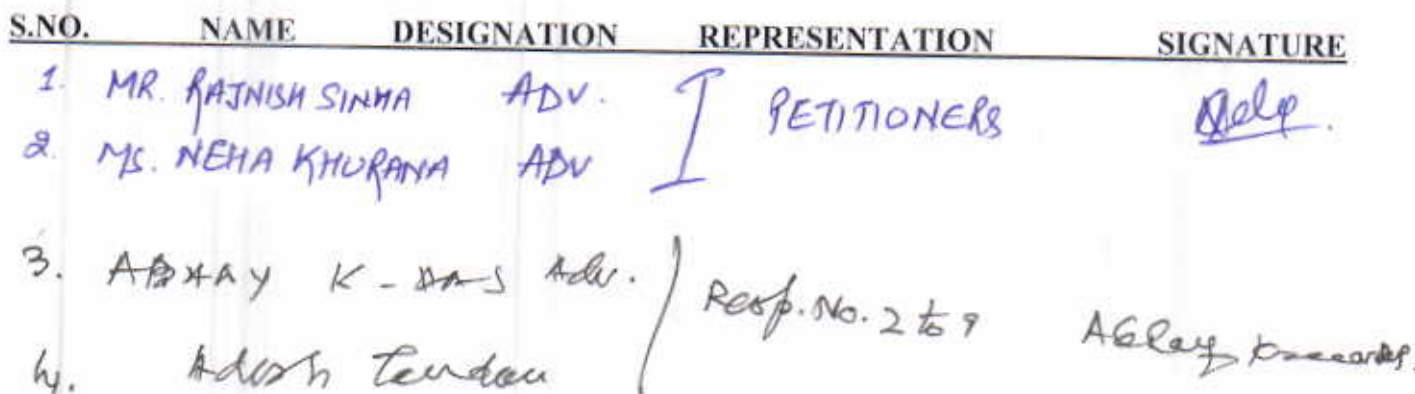 S.NO. NAME DESIGNATION REPRESENTATION SIGNATURE
1. MR. RAJNISH SINHA ADV. PETITIONERS
2. MS. NEHA KHURANA ADV
3. ABHAY K - DAS Adv. Resp. No. 2 to 9 Abhay
4. Adesh Tandon